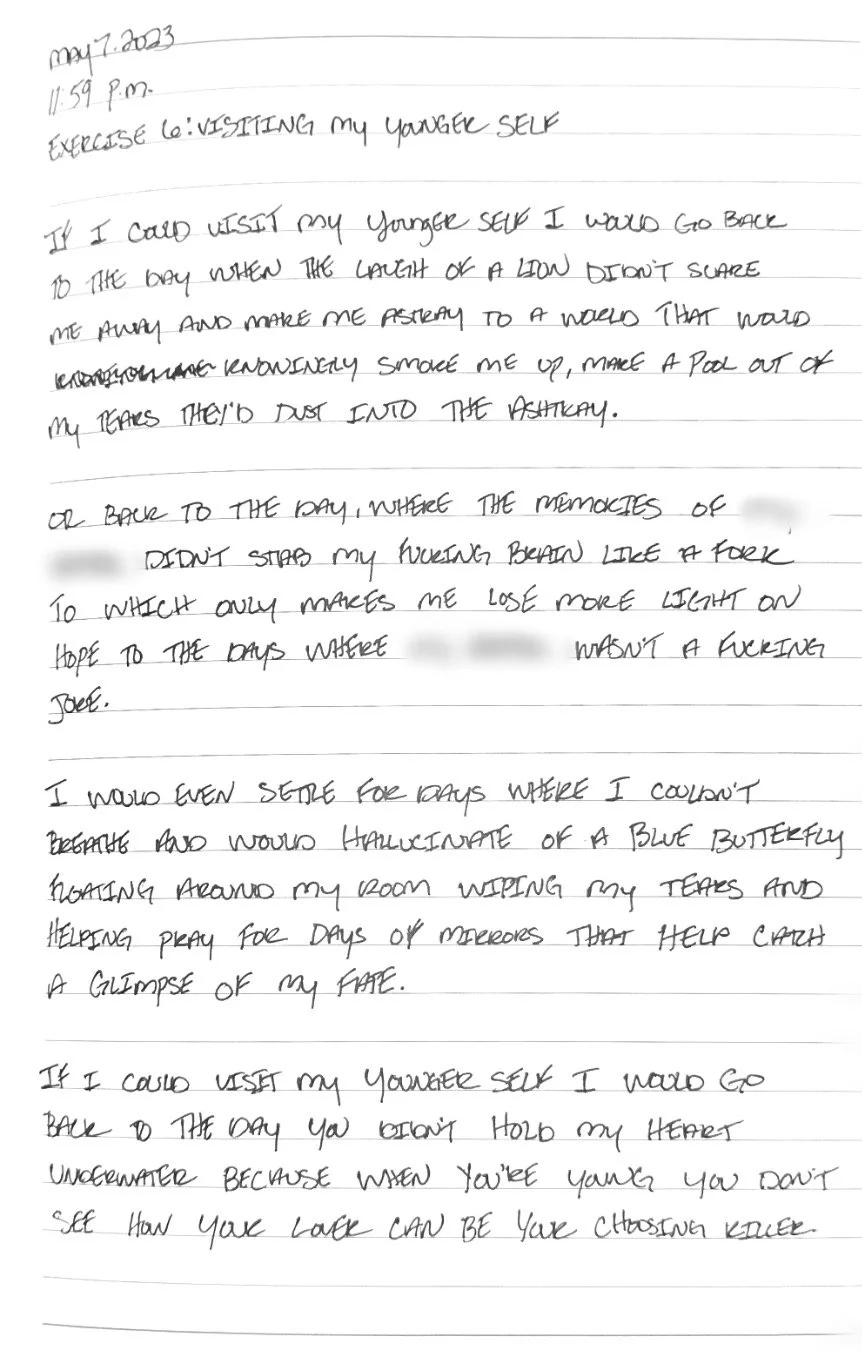 May 7. 2023
11:59 P.M.
EXERCISE 6: VISITING MY YOUNGER SELF
IF I COULD VISIT MY YOUNGER SELF I WOULD GO BACK
TO THE DAY WHEN THE LAUGH OF A LION DIDN'T SCARE
ME AWAY AND MAKE ME ASTRAY TO A WORLD THAT WOULD
KNOWINGLY SMOKE ME UP, MAKE A POOL OUT OF
MY TEARS THEY'D DUST INTO THE ASHTRAY.
OR BACK TO THE DAY, WHERE THE MEMORIES OF
DIDN'T STAB MY FUCKING BRAIN LIKE A FORK
TO WHICH ONLY MAKES ME LOSE MORE LIGHT ON
HOPE TO THE DAYS WHERE WASN'T A FUCKING
JOKE.
I WOULD EVEN SETTLE FOR DAYS WHERE I COULDN'T
BREATHE AND WOULD HALLUCINATE OF A BLUE BUTTERFLY
FLOATING AROUND MY ROOM WIPING MY TEARS AND
HELPING PRAY FOR DAYS OF MIRRORS THAT HELP CATCH
A GLIMPSE OF MY FATE.
IF I COULD VISIT MY YOUNGER SELF I WOULD GO
BACK TO THE DAY YOU DIDN'T HOLD MY HEART
UNDERWATER BECAUSE WHEN YOU'RE YOUNG YOU DON'T
SEE HOW YOUR LOVER CAN BE YOUR CHOOSING KILLER.